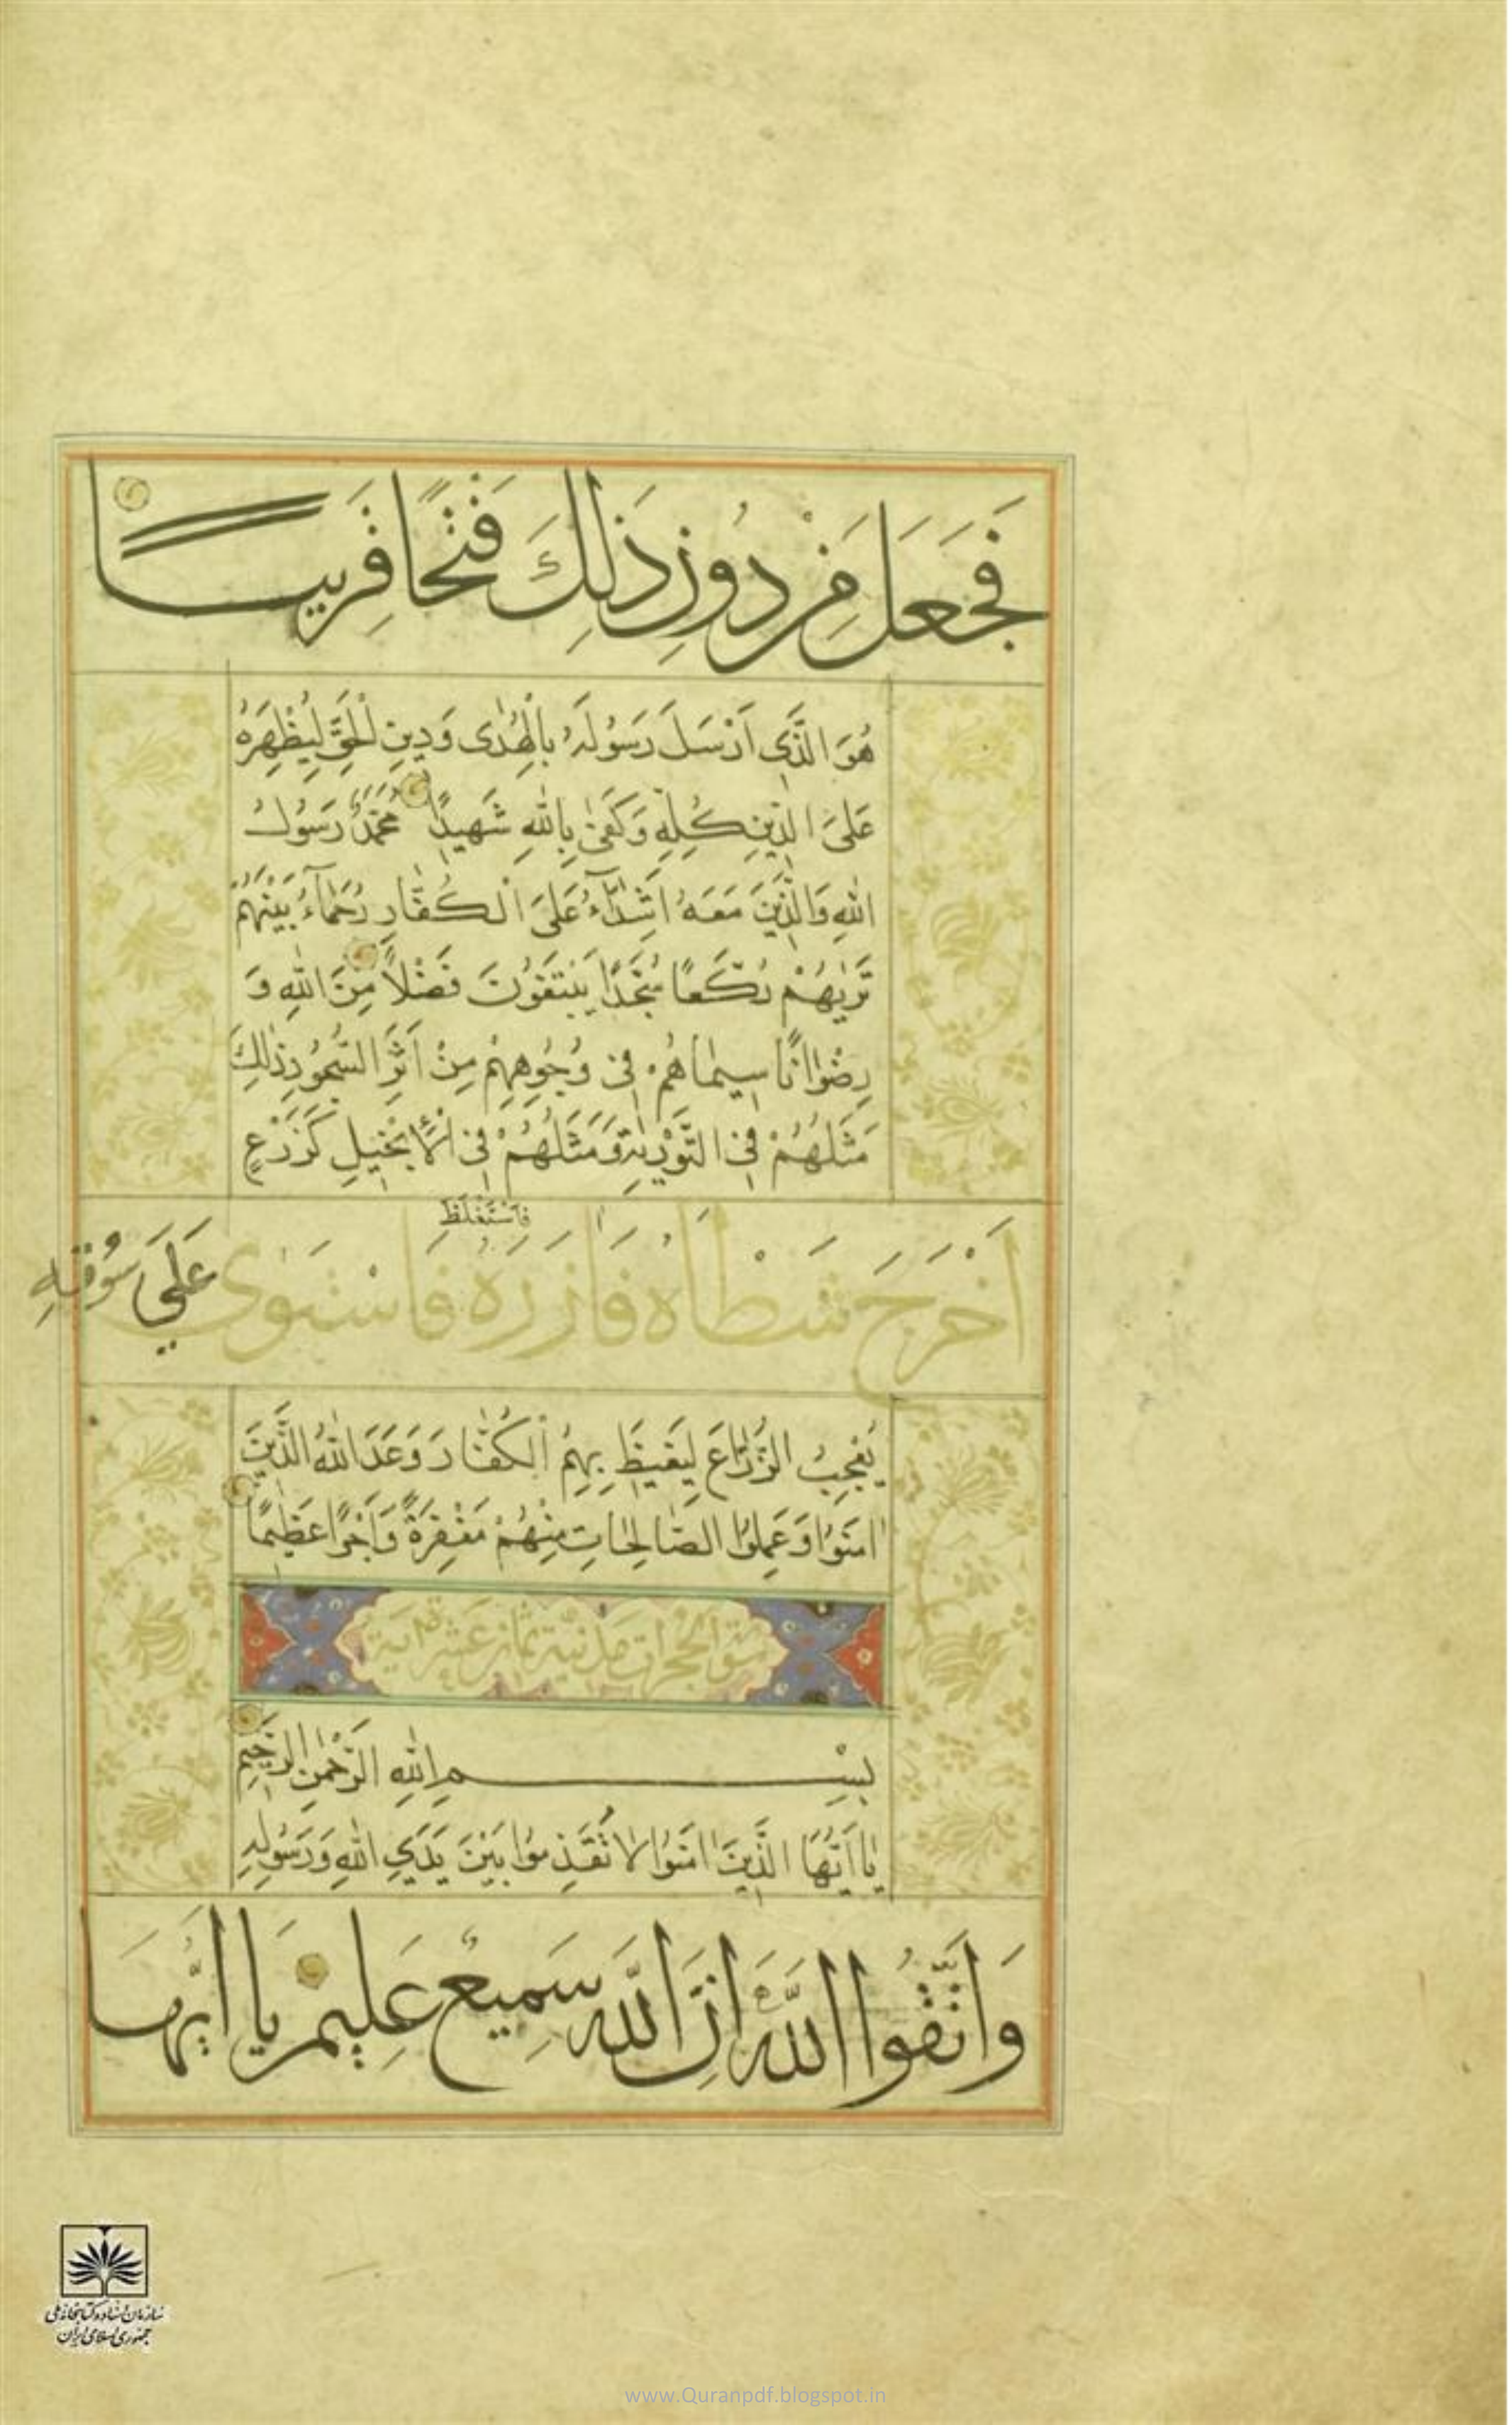 فَجَعَلَ مِنْ دُونِ ذَلِكَ فَتْحًا قَرِيبًا
هُوَ الَّذِي اَرْسَلَ رَسُولَهُ بِالْهُدٰى وَدِينِ الْحَقِّ لِيُظْهِرَهُ
عَلَى الدِّينِ كُلِّهِ وَكَفىٰ بِاللّٰهِ شَهِيدًا مُحَمَّدٌ رَسُولُ
اللّٰهِ وَالَّذِينَ مَعَهُ اَشِدَّآءُ عَلَى الْكُفَّارِ رُحَمَآءُ بَيْنَهُمْ
تَرٰيهُمْ رُكَّعًا سُجَّدًا يَبْتَغُونَ فَضْلًا مِنَ اللّٰهِ وَ
رِضْوَانًا سِيمَاهُمْ فِي وُجُوهِهِمْ مِنْ اَثَرِ السُّجُودِ ذٰلِكَ
مَثَلُهُمْ فِي التَّوْرٰيةِ وَمَثَلُهُمْ فِي الْاِنْجِيلِ كَزَرْعٍ
فَاسْتَغْلَظَ
اَخْرَجَ شَطْاَهُ فَاٰزَرَهُ فَاسْتَوٰى عَلَى سُوقِهِ
يُعْجِبُ الزُّرَّاعَ لِيَغِيظَ بِهِمُ الْكُفَّارَ وَعَدَ اللّٰهُ الَّذِينَ
اٰمَنُوا وَعَمِلُوا الصَّالِحَاتِ مِنْهُمْ مَغْفِرَةً وَاَجْرًا عَظِيمًا
سورة الحجرات مدنية ثمان عشر اية
بِسْمِ اللّٰهِ الرَّحْمٰنِ الرَّحِيمِ
يٰا اَيُّهَا الَّذِينَ اٰمَنُوا لَا تُقَدِّمُوا بَيْنَ يَدَيِ اللّٰهِ وَرَسُولِهِ
وَاتَّقُوا اللَّهَ اِنَّ اللَّهَ سَمِيعٌ عَلِيمٌ يَا اَيُّهَا
سازمان اسناد و کتابخانه ملی
جمهوری اسلامی ایران
www.Quranpdf.blogspot.in